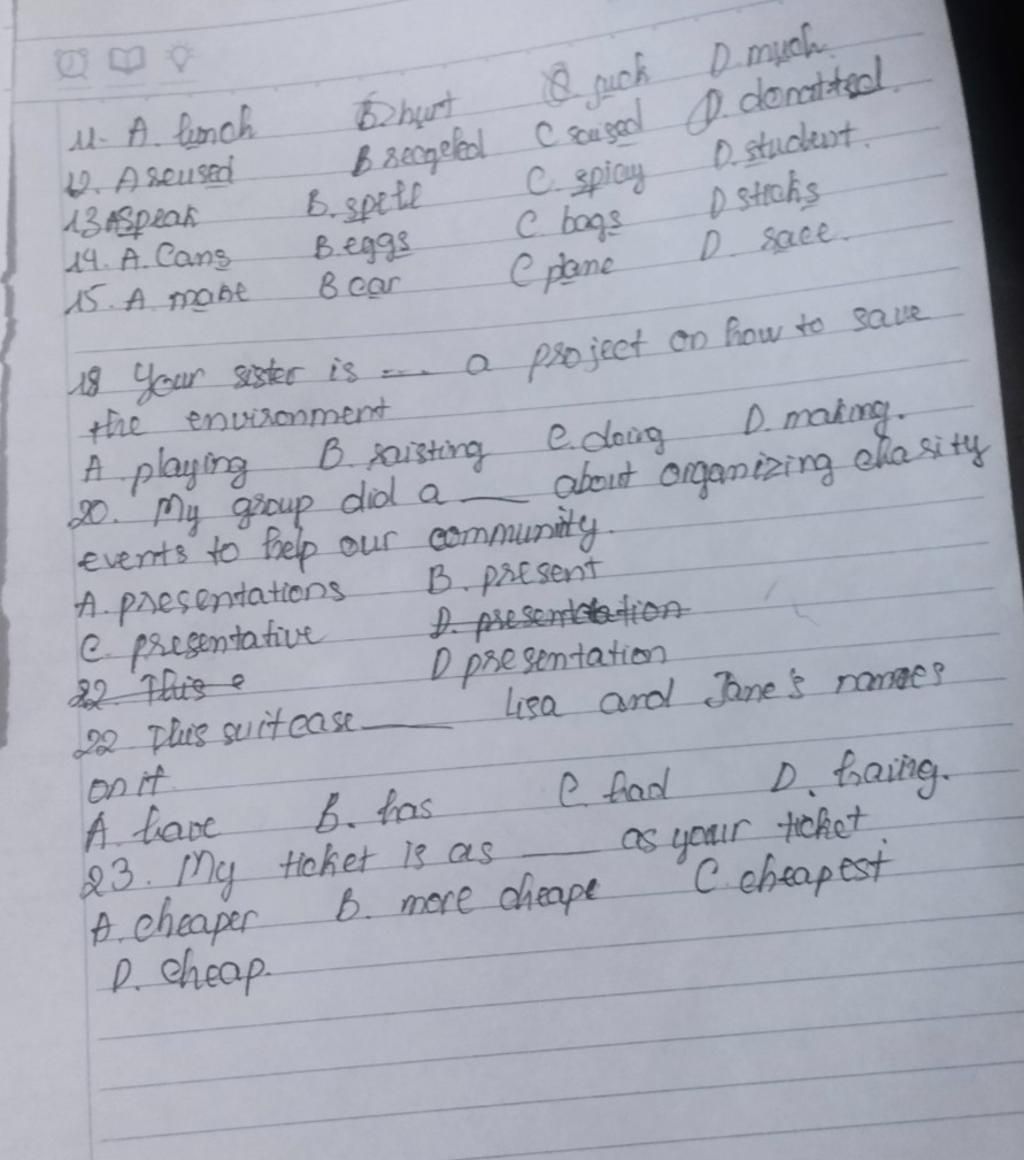 11. A. lunch B. hurt C. such D. much.
12. A reused B recycled C raised D. donated.
13 A speak B. spell C. spicy D. student.
14. A. Cans B. eggs C bags D sticks
15. A. make B car C plane D. race.
18 Your sister is --- a project on how to save
the environment
A playing B. raising C. doing D. making.
20. My group did a ___ about organizing charity
events to help our community.
A. presentations B. present
C. presentative D. presentation
22. This D presentation
22 This suitcase ___ Lisa and Jane's names
on it
A. have B. has C. had D. having.
23. My ticket is as ___ as your ticket.
A. cheaper B. more cheape C. cheapest
D. cheap.